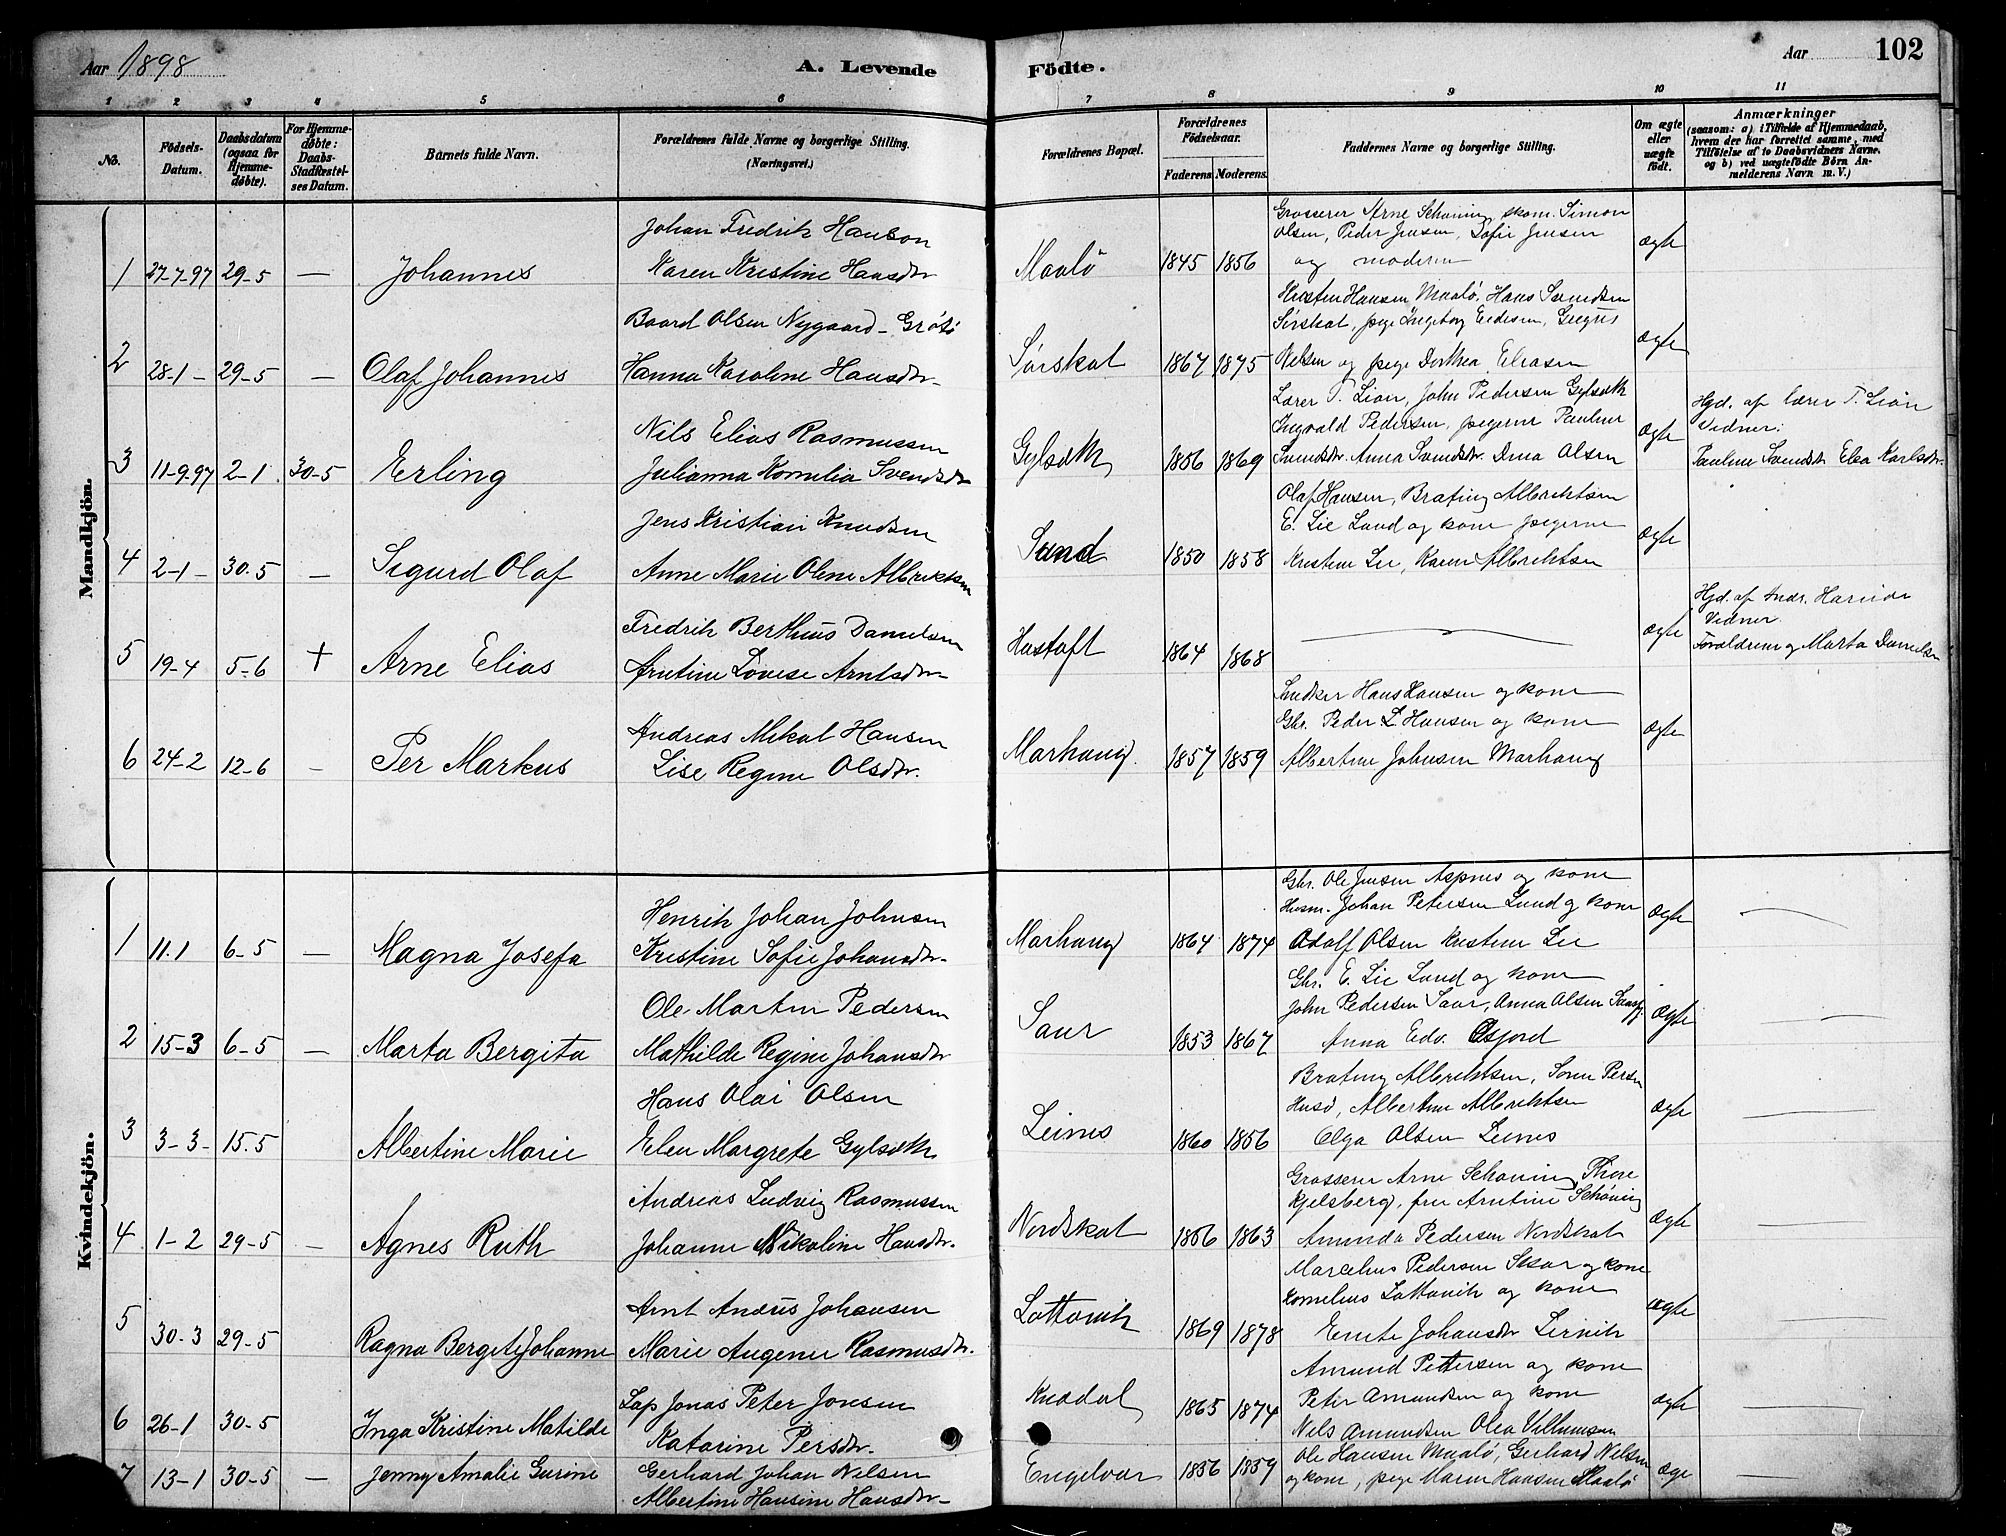 Aar 1898
A. Levende
Födte.
Aar
102
1 2 3 4 5 6 7 8 9 10 11
No.
Födsels-
Datum.
Daabsdatum
(ogsaa for
Hjemme-
døbte).
For Hjemme-
døbte:
Daabs-
Stadfæstel-
ses Datum.
Barnets fulde Navn.
Forældrenes fulde Navne og borgerlige Stilling.
(Næringsvei.)
Forældrenes Bopæl.
Forældrenes
Födselsaar.
Faderens. Moderens.
Faddernes Navne og borgerlige Stilling.
Om ægte
eller
uægte
født.
Anmærkninger
(saasom: a) i Tilfælde af Hjemmedaab,
hvem der har forrettet samme, med
Tilföielse af to Daabsvidners Navne.
og b) ved uægtefødte Börn An-
melderens Navn m. V.)
Mandkjön.
Johan Fredrik Hanson
Grosserer Arne Schøning, kone. Simon
Olsen, Peder Jensen, Sofie Jensen
1 27-7-97 29-5 — Johannes Karen Kristine Hansdtr Maalö 1845 1856 og moderen ægte
Baard Olsen Nygaard - Grötö
Kristen Hansen Maalö, Hans Svendsen
Sørskat, pige Ingeborg
2 28-1- 29-5 — Olaf Johannes Hanna Karoline Hansdtr. Sørskat 1867 1875 Nelsen og pige Dorthea Eliasen ægte
Nils Elias Rasmussen
Lærer T. Lian, John Pedersen Gylseth
Ingvald Pedersen, pigerne Pauline
Hjd. af lærer T. Lian
Vidner:
3 11-9-97 2-1 30-5 Erling Julianna Kornelia Svendsdtr Gylseth 1856 1869 Svendsdtr. Anna Svendsdtr. Dina Olsen ægte Pauline Svendsdtr Elea Karlsdtr.
Jens Kristian Knudsen
Olaf Hansen, Brating Albriktsen
E. Lie Lund og kone pigerne
4 2-1- 30-5 — Sigurd Olaf Anne Marie Oline Albriktsen Sund 1850 1858 Kristine Lie, Karen Albriktsen ægte
Fredrik Berthius Danielsen
Hjd. af Andr. Hansen
Vidner
5 19-4 5-6 + Arne Elias Arntine Lovise Arntsdtr. Hustoft 1864 1868 — ægte Forældrene og Marta Danielsen
Andreas Mikal Hansen
Snedker Hans Hansen og kone
Gbr. Peder L. Hansen og kone
6 24-2 12-6 — Per Markus Lise Regine Olsdtr. Marhaug. 1857 1859 Albertine Johnsen Marhaug ægte
Kvindekjön.
Henrik Johan Johnsen
Gbr. Ole Jensen Aspnes og kone
Husm. Johan Petersen Lund og kone
1 11.1 6-5 — Magna Josefa Kristine Sofie Johansdtr. Marhaug 1864 1874 Adolf Olsen Kristine Lie ægte —
Ole Martin Pedersen
Gbr. E. Lie Lund og kone
John Pedersen Saur, Anna Olsen
2 15-3 6-5 — Marta Bergita Mathilde Regine Johansdtr Saur 1853 1867 Anna Edv. Øsfjord ægte —
Hans Olai Olsen
Brating Albriktsen, Persen
Husö, Albertine Albriktsen
3 3-3- 15.5 Albertine Marie Elen Margrete Gylseth. Leines 1860 1856 Olga Olsen Leines ægte —
Andreas Ludvig Rasmussen
Grosserer Arne Schøning, Thore
Kjelsberg, fru Arntine Schöning
4 1-2 29-5 — Agnes Ruth Johanne Nikoline Hansdtr. Nordskat 1856 1863 Amanda Pedersen Nordskat ægte —
Arnt Andreas Johansen
Marcelius Pedersen Skar og kone
Kornelius Lottavik og kone
5 30-3 29-5 Ragna Bergite Johanne Marie Augenie Rasmusdtr. Lottavik 1869 1878 Johansdtr Leirvik ægte
Lap Jonas Peter Jonsen
Amund Pettersen og kone
Peter Amundsen og kone
6 26-1 30-5 Inga Kristine Matilde Katarine Persdtr. 1865 1874 Nils Amundsen Olea Villumsen ægte —
Gerhard Johan Nilsen
Ole Hansen Maalö, Gerhard Nilsen
7 13-1 30-5 — Jenny Amalie Gurine Albertine Hansine Hansdtr. Engelvær 1856 1859 og kone, pige Maren Hansen Maalö æge —